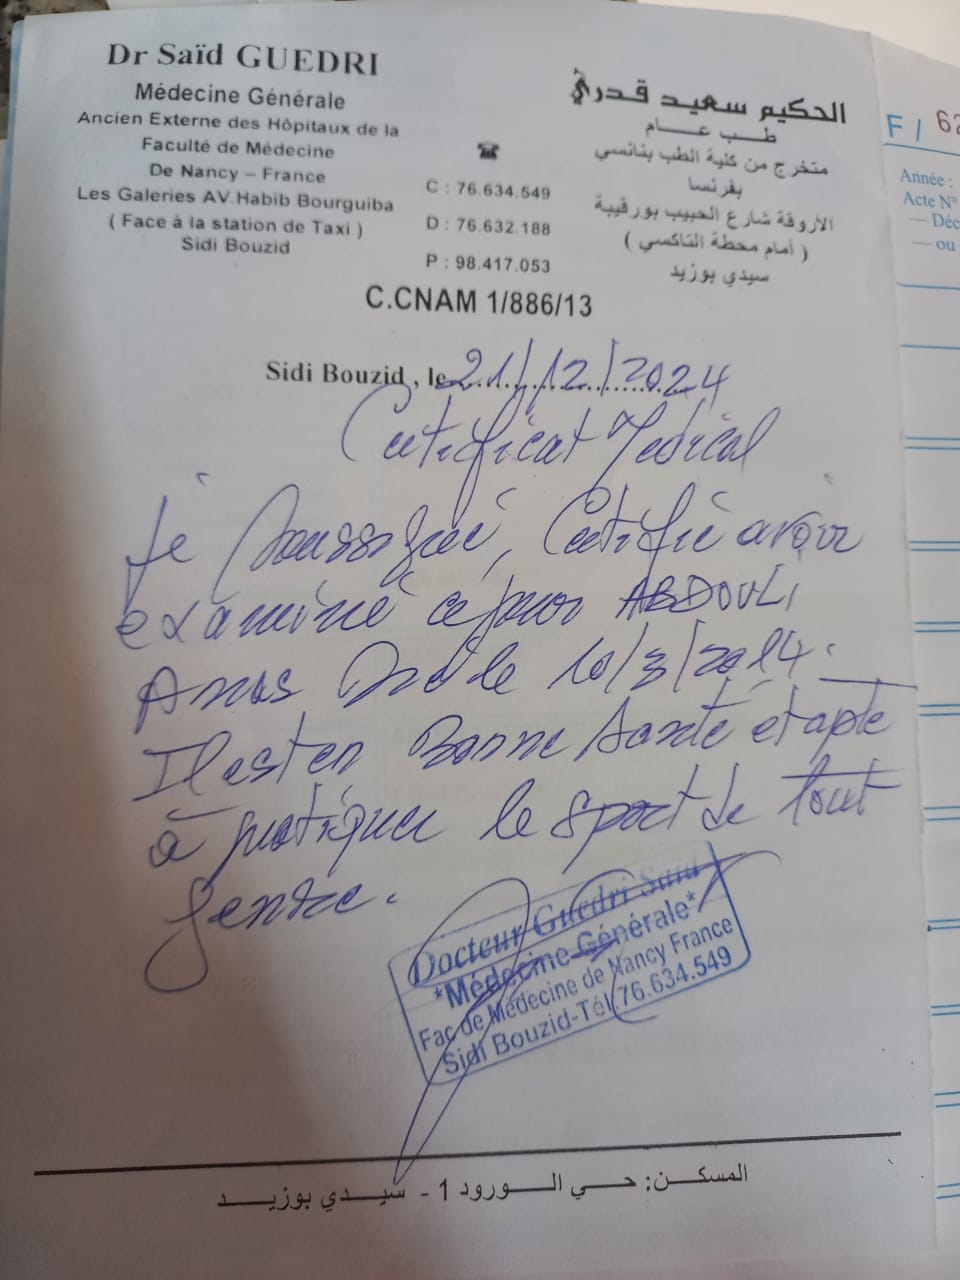 Dr Saïd GUEDRI
Médecine Générale
Ancien Externe des Hôpitaux de la
Faculté de Médecine
De Nancy – France
Les Galeries AV.Habib Bourguiba
( Face à la station de Taxi )
Sidi Bouzid
☎
C : 76.634.549
D : 76.632.188
P : 98.417.053
الحكيم سعيد قدري
طب عام
متخرج من كلية الطب بنانسي
بفرنسا
الأروقة شارع الحبيب بورقيبة
( أمام محطة التاكسي )
سيدي بوزيد
C.CNAM 1/886/13
Sidi Bouzid , le 21/12/2024
Certificat Medical
Je Soussigné, Certifie avoir
examiné ce jour ABDOULI
Anas Né le 10/3/2014.
Il est en Bonne Santé et apte
à pratiquer le sport de tout
genre.
Docteur Guedri Said
*Médecine Générale*
Fac de Médecine de Nancy France
Sidi Bouzid-Tél.76.634.549
المسكن: حي الورود 1 - سيدي بوزيد
F / 62
Année :
Acte N°
— Déc
— ou